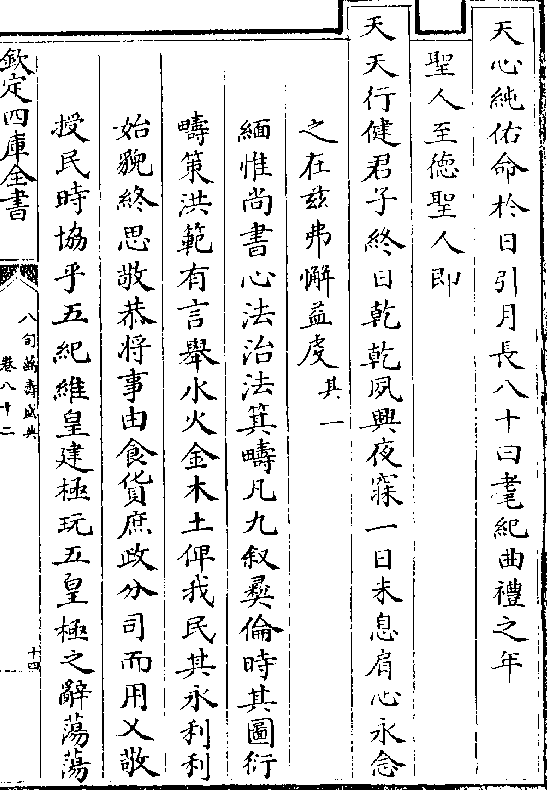 天心純佑命於日引月長八十曰耄紀曲禮之年
聖人至德聖人即
天天行健君子終日乾乾夙興夜寐一日未息肩心永念
之在兹弗懈益虔其一
緬惟尚書心法治法箕疇凡九叙彛倫時其圖衍
疇策洪範有言舉水火金木土俾我民其永利利
始貌終思敬恭將事由食貨庶政分司而用乂敬
授民時協乎五紀維皇建極玩五皇極之辭蕩蕩
欽定四庫全書
八旬萬壽盛典
卷八十二
十四